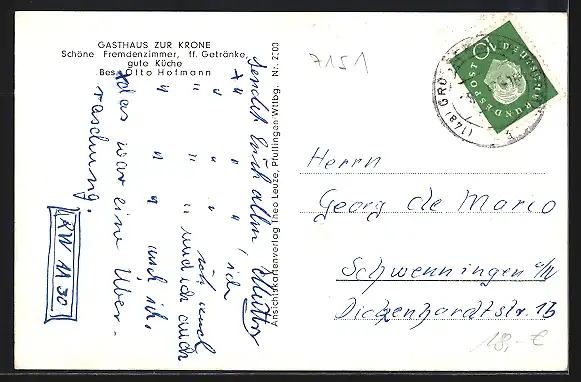 GASTHAUS ZUR KRONE
Schöne Fremdenzimmer, ff. Getränke,
gute Küche
Bes. Otto Hofmann
Ansichtskartenverlag Theo Leuze, Pfullingen-Wttbg. Nr. 2703
sendet Euch allen Mutter
" " " ich
" " " ich auch
" " und ich auch
" " " auch ich.
das war eine Über-
raschung.
RW 11 30
7151
DEUTSCHE BUNDESPOST
10
(14b) GRÖ
Herrn
Georg de Mario
Schwenningen a/N
Dickenhardtstr. 1b
18,- €